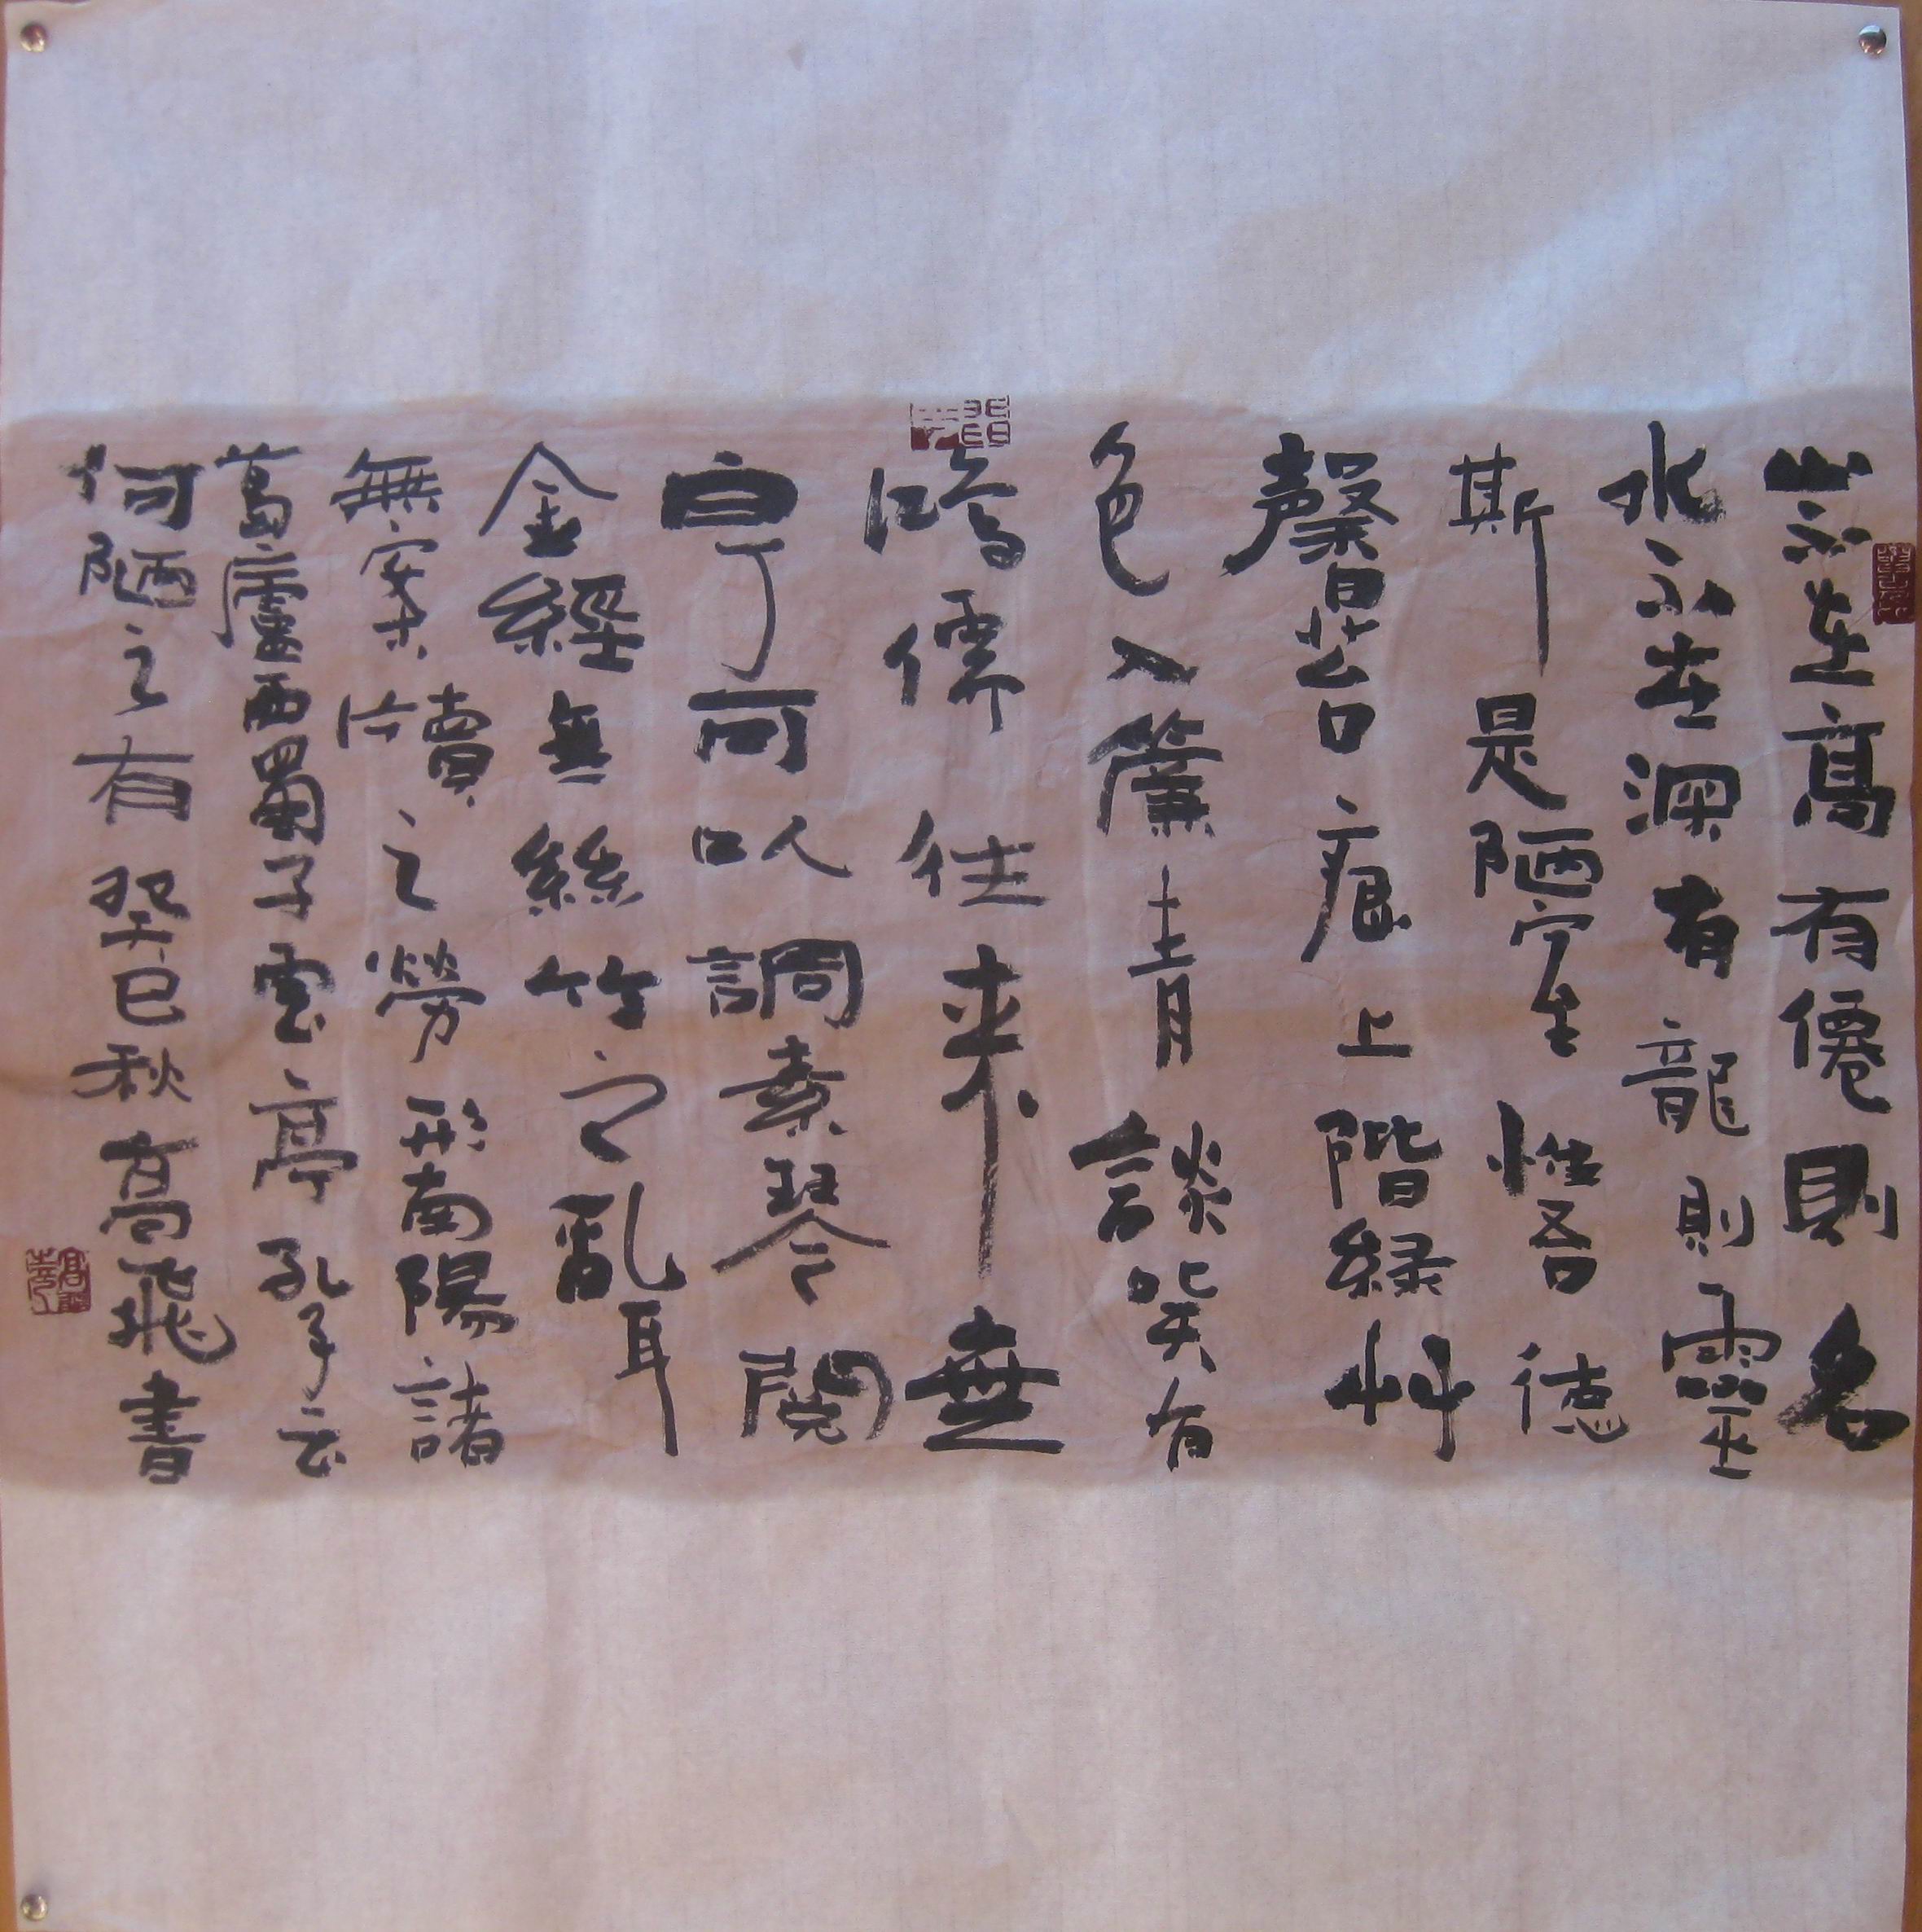 山不在高有僊則名
水不在深有龍則靈
斯是陋室惟吾德
馨苔痕上階緑艸
色入簾青談笑有
鴻儒往来無
白丁可以調素琴閱
金經無絲竹之亂耳
無案牘之勞形南陽諸
葛廬西蜀子雲亭孔子云
何陋之有癸巳秋高飛書